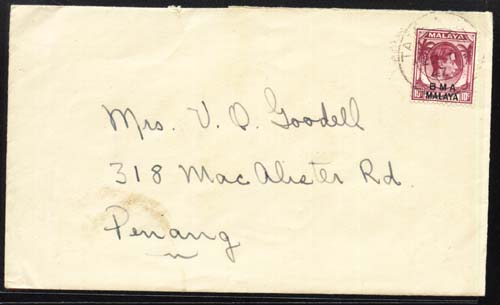 MALAYA
BMA
MALAYA
Mrs. V. O. Goodell
318 MacAlister Rd.
Penang